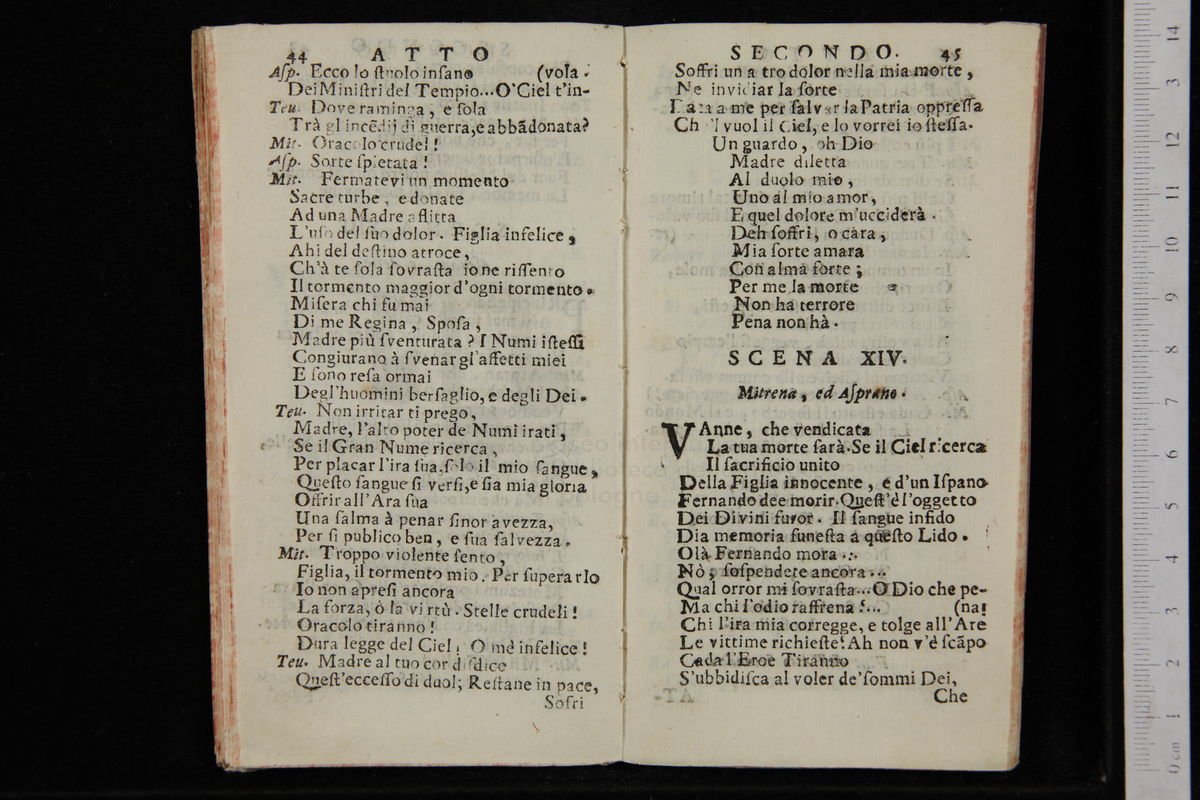 44 ATTO
Aſp. Ecco lo ſtuolo inſano (vola.
Dei Miniſtri del Tempio...O'Ciel t'in-
Teu. Dove raminga, e ſola
Trà gl'incẽdij di guerra, e abbãdonata?
Mit. Oracolo crudel!
Aſp. Sorte ſpietata!
Mit. Fermatevi un momento
Sacre turbe, e donate
Ad una Madre aflitta
L'uſo del ſuo dolor. Figlia infelice,
Ahi del deſtino atroce,
Ch'à te ſola ſovraſta io ne riſſento
Il tormento maggior d'ogni tormento.
Miſera chi fu mai
Di me Regina, Spoſa,
Madre più ſventurata? I Numi iſteſſi
Congiurano à ſvenar gl'affetti miei
E ſono reſa ormai
Degl'huomini berſaglio, e degli Dei.
Teu. Non irritar ti prego,
Madre, l'alto poter de Numi irati,
Se il Gran Nume ricerca,
Per placar l'ira ſua, ſolo il mio ſangue,
Queſto ſangue ſi verſi, e ſia mia gloria
Offrir all'Ara ſua
Una ſalma à penar ſinor avezza,
Per ſi publico ben, e ſua ſalvezza.
Mit. Troppo violente ſento,
Figlia, il tormento mio. Per ſuperarlo
Io non apreſi ancora
La forza, ò la virtù. Stelle crudeli!
Oracolo tiranno!
Dura legge del Ciel! O mè infelice!
Teu. Madre al tuo cor diſdice
Queſt'ecceſſo di duol; Reſtane in pace,
Sofri
SECONDO. 45
Soffri un a tro dolor nella mia morte,
Ne invidiar la ſorte
Data a me per ſalvar la Patria oppreſſa
Ch 'l vuol il Ciel, e lo vorrei io ſteſſa.
Un guardo, oh Dio
Madre diletta
Al duolo mio,
Uno al mio amor,
E quel dolore m'ucciderà.
Deh ſoffri, o cara,
Mia ſorte amara
Con alma forte;
Per me la morte
Non ha terrore
Pena non hà.
SCENA XIV.
Mitrena, ed Aſprano.
VAnne, che vendicata
La tua morte ſarà. Se il Ciel ricerca
Il ſacrificio unito
Della Figlia innocente, e d'un Iſpano
Fernando dee morir. Queſt'è l'oggetto
Dei Divini furor. Il ſangue infido
Dia memoria funeſta a queſto Lido.
Olà Fernando mora...
Nò, ſoſpendete ancora...
Qual orror mi ſovraſta...O Dio che pe-
Ma chi l'odio raffrena?... (na!
Chi l'ira mia corregge, e tolge all'Are
Le vittime richieſte? Ah non v'è ſcãpo
Cada l'Eroe Tiranno
S'ubbidiſca al voler de'ſommi Dei,
Che